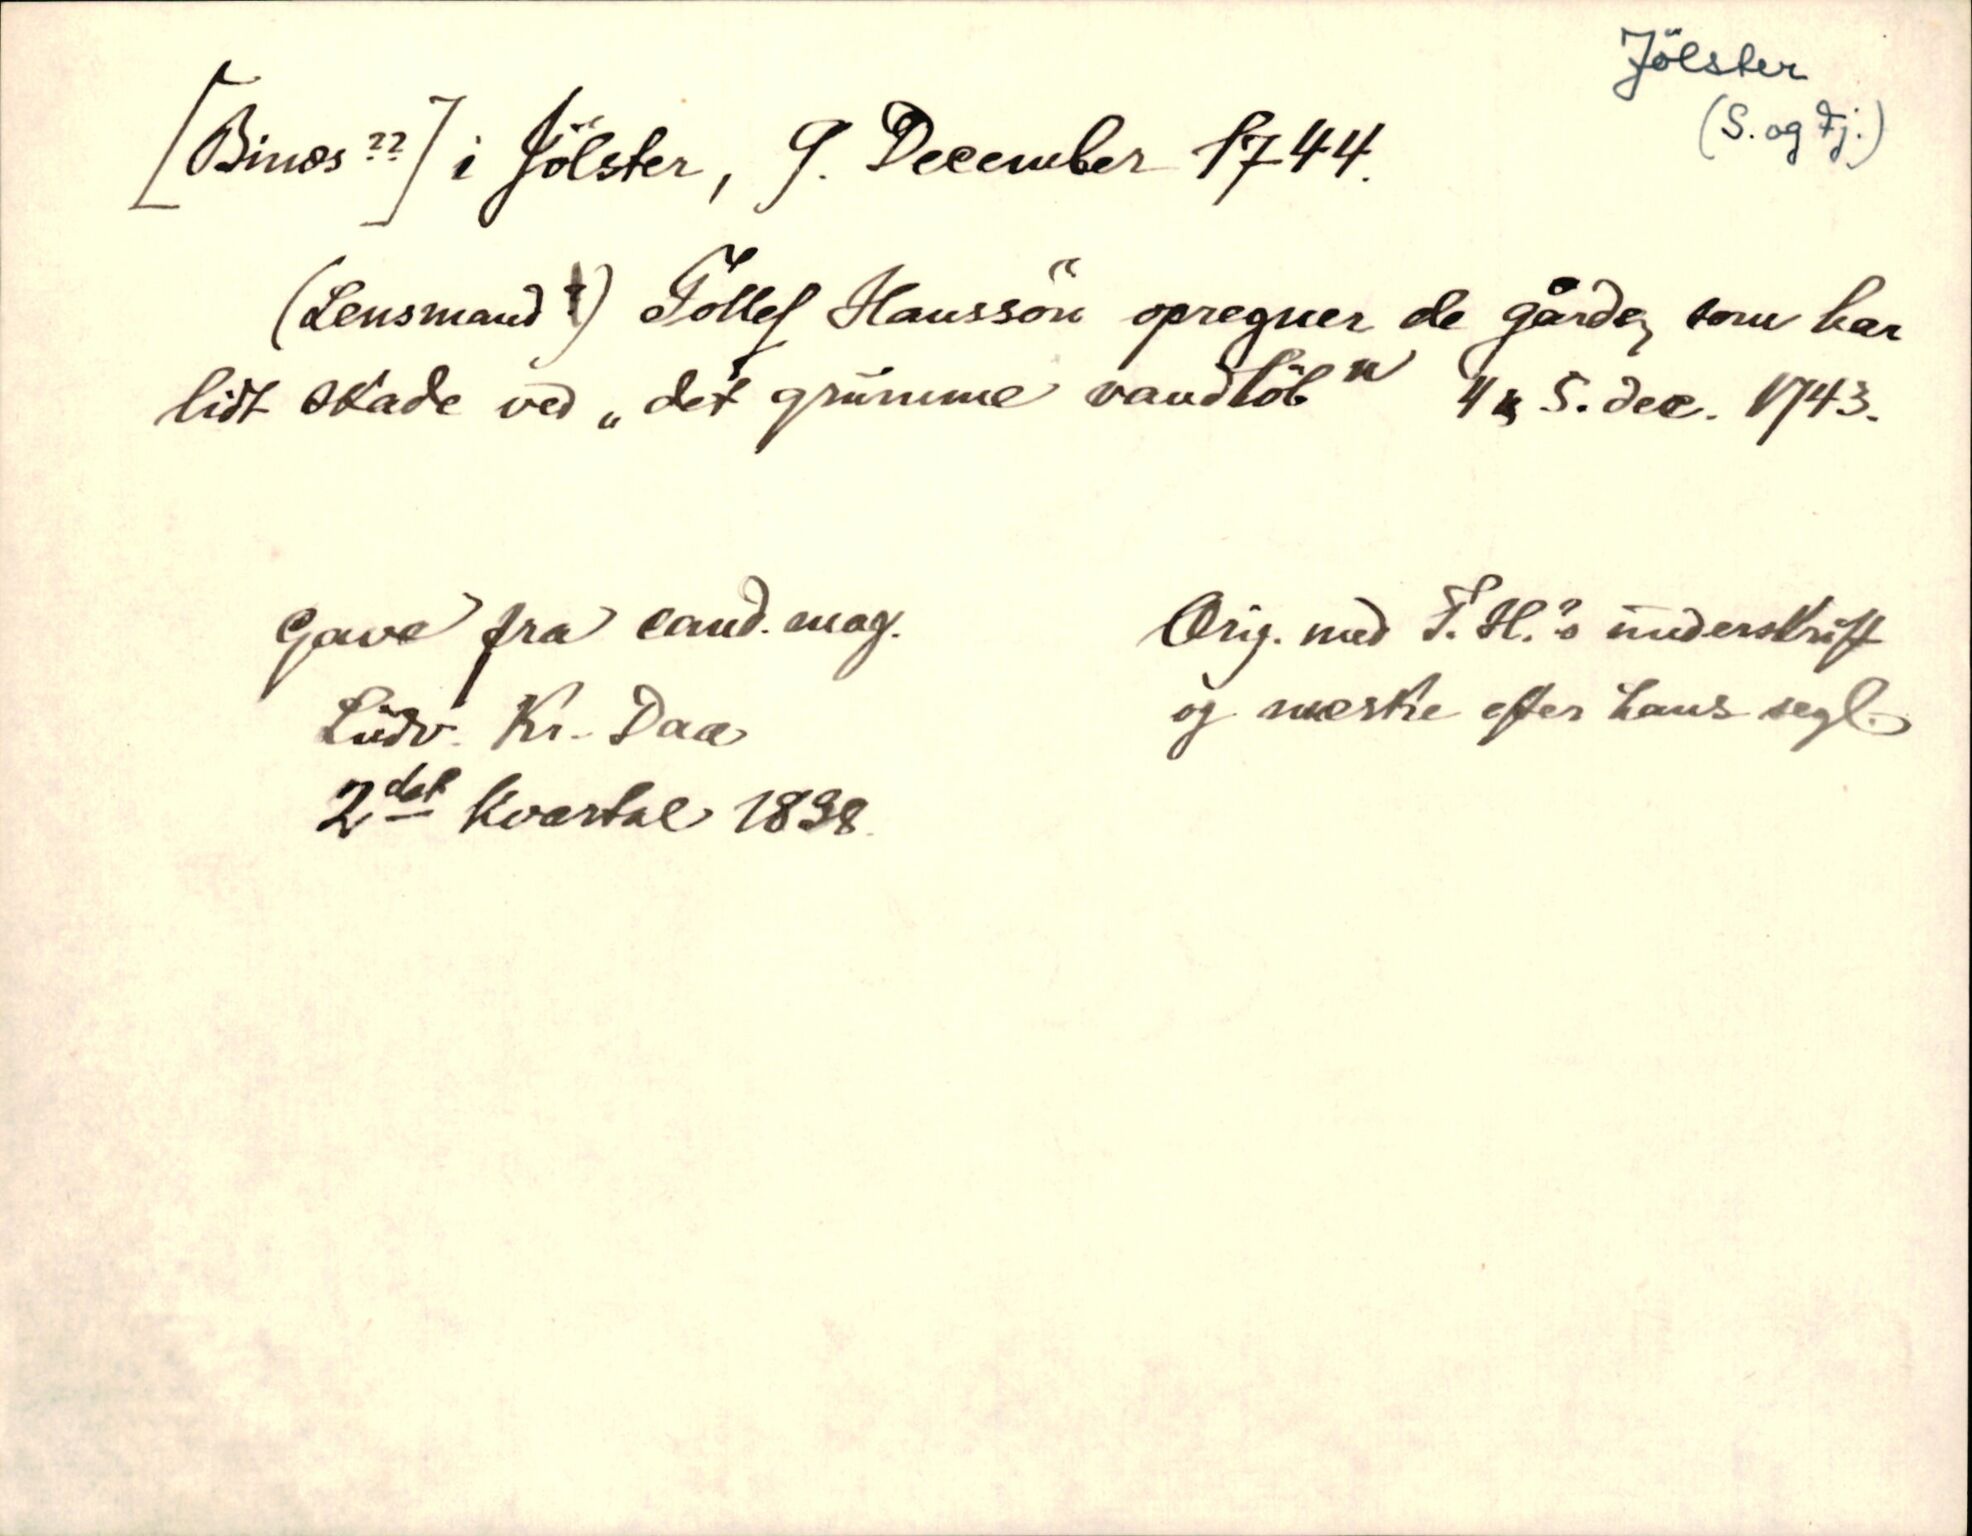 Jölster
(S. og Fj.)
[Binæs ??] i Jölster, 9. December 1744.
(Lensmand ?) Tollef Hanssön opregner de gårde, som har
lidt skade ved „det grumme vandløb" 4 & 5. dec. 1743.
Gave fra cand. mag.
Ludv. Kr. Daa
2det kvartal 1898.
Orig. med T. H.'s underskrift
og mærke efter hans segl.